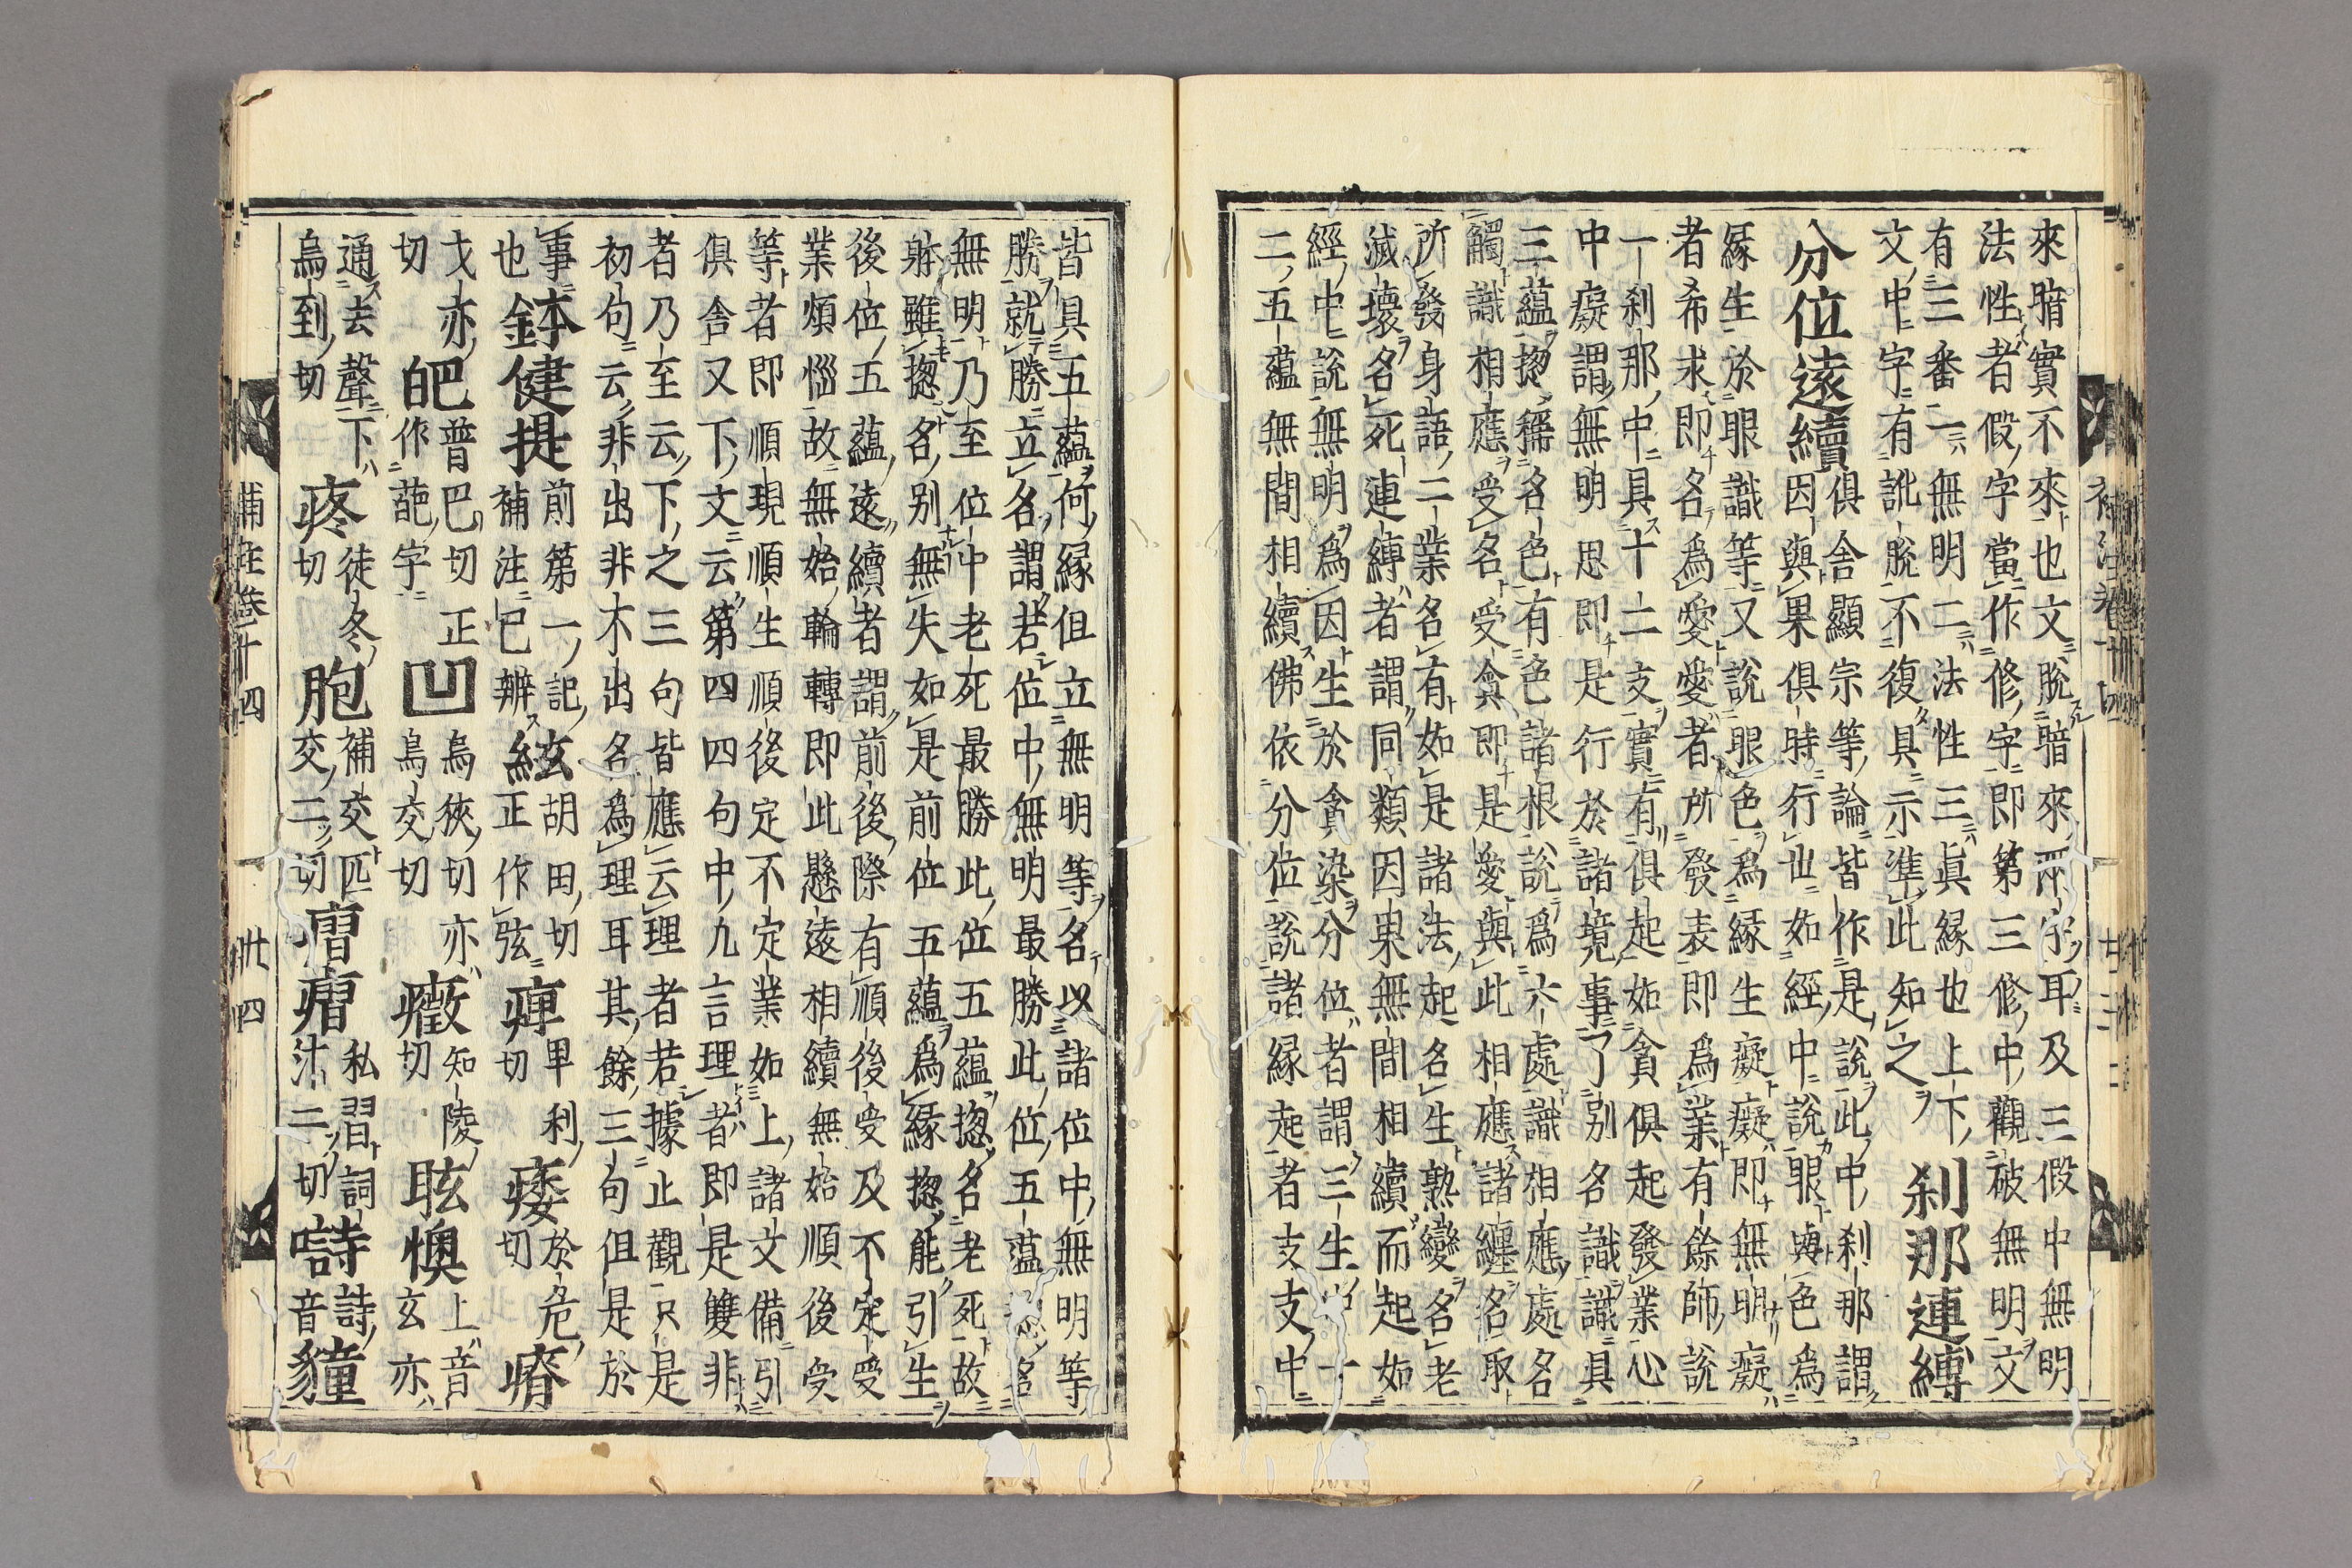 來暗實不來也文脫暗來兩字耳及三假中無明
法性者假字當作修字即第三修中觀破無明文
有三番一無明二法性三真緣也上下刹那連縛
文中字有訛脫不復具示準此知之
分位遠續俱舍顯宗等論皆作是說此中刹那謂
因與果俱時行世如經中說眼與色為
緣生於眼識等又說眼色為緣生癡癡即無明癡
者希求即名為愛愛者所發表即為業有餘師說
一刹那中具十二支實有俱起如貪俱起發業心
中癡謂無明思即是行於諸境事了別名識識具
三蘊揔稱名色有色諸根說為六處識相應處名
觸識相應受名受貪即是愛與此相應諸纏名取
所發身語二業名有如是諸法起名生熟變名老
滅壞名死連縛者謂同類因果無間相續而起如
經中說無明為因生於貪染分位者謂三生十
二五蘊無間相續佛依分位說諸緣起者支支中
皆具五蘊何緣但立無明等名以諸位中無明等
勝就勝立名謂若位中無明最勝此位五蘊揔名
無明乃至位中老死最勝此位五蘊揔名老死故
躰雖揔名別無失如是前位五蘊為緣揔能引生
後位五蘊遠續者謂前後際有順後受及不定受
業煩惱故無始輪轉即此懸遠相續無始順後受
等者即順現順生順後定不定業如上諸文備引
俱舍又下文云第四四句中九言理者即是雙非
者乃至云下之三句皆應云理者若據止觀只是
初句云非出非不出名為理耳其餘三句但是於
事鉢健提前第一記絃胡田切痺卑利切痿於危切瘠
也補注已辨正作弦
戈亦切皅普巴切正作葩字凹烏狹切亦烏交切癥知陵切眩懊上音玄亦
通去聲下烏到切疼徒冬切胞補交匹交二切瘤瘤私習詞汁二切
補注卷十四
卅四